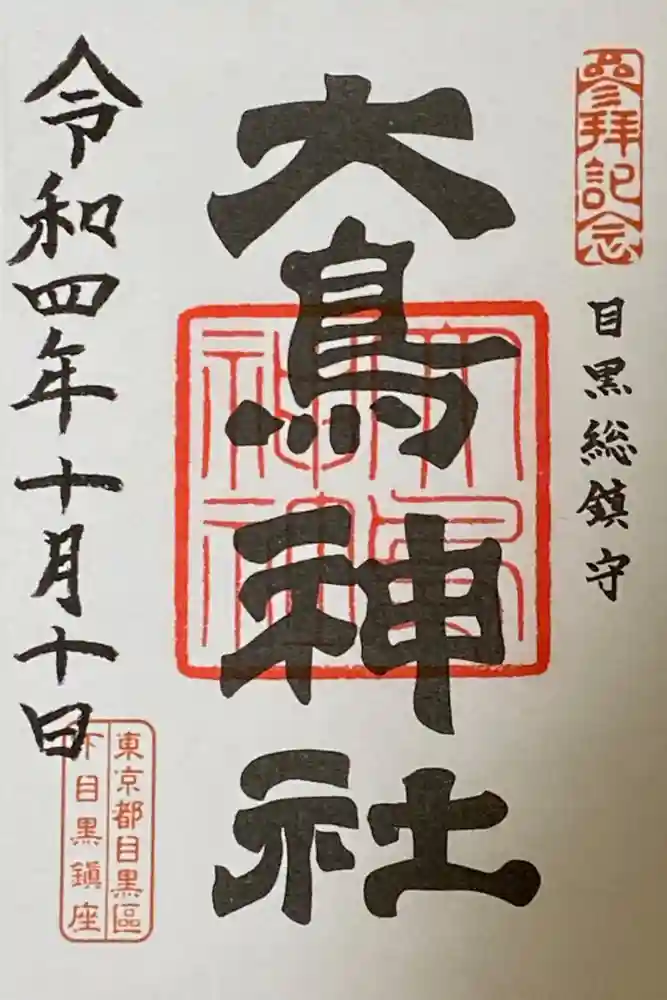 參拜記念
目黒総鎮守
大鳥神社
大鳥神社
令和四年十月十日
東京都目黒區
下目黒鎮座